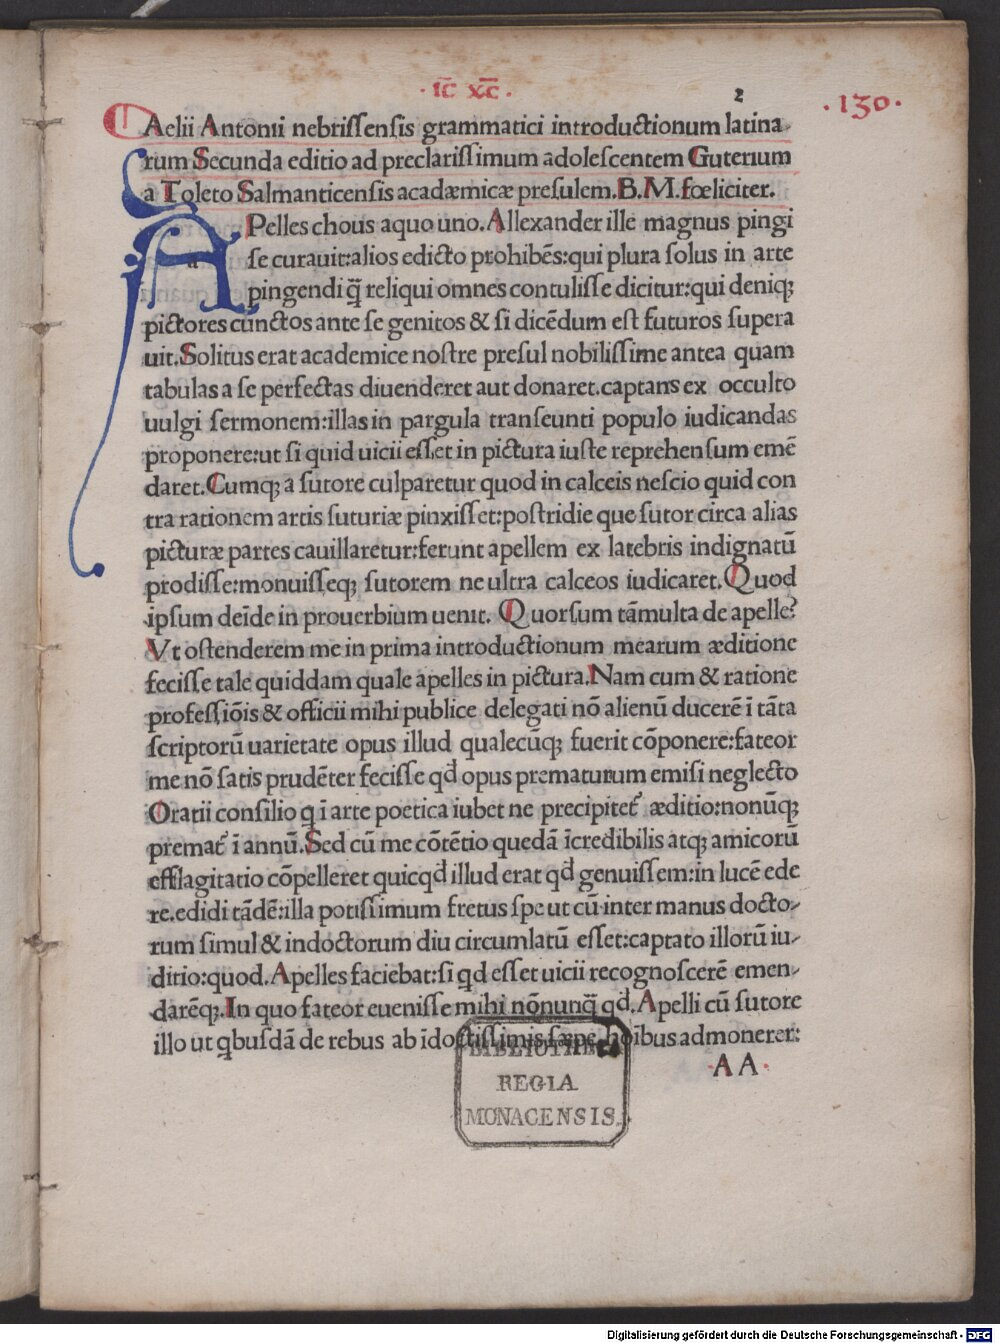 · IC̄ XC̄ ·
2
· 130 ·
Aelii Antonii nebrissensis grammatici introductionum latina-
rum Secunda editio ad preclarissimum adolescentem Guterium
a Toleto Salmanticensis academicæ presulem. B. M. fœliciter.
APelles chous aquo uno. Allexander ille magnus pingi
a
se curauit: alios edicto prohibēs: qui plura solus in arte
pingendi q̄ reliqui omnes contulisse dicitur: qui deniqꝫ
pictores cunctos ante se genitos & si dicēdum est futuros supera
uit. Solitus erat academice nostre presul nobilissime antea quam
tabulas a se perfectas diuenderet aut donaret. captans ex occulto
uulgi sermonem: illas in pargula transeunti populo iudicandas
proponere: ut si quid uicii esset in pictura iuste reprehensum emē
daret. Cumqꝫ a sutore culparetur quod in calceis nescio quid con
tra rationem artis suturiæ pinxisset: postridie que sutor circa alias
picturæ partes cauillaretur: ferunt apellem ex latebris indignatū
prodisse: monuisseqꝫ sutorem ne ultra calceos iudicaret. Quod
ipsum deīde in prouerbium uenit. Quorsum tāmulta de apelle?
Vt ostenderem me in prima introductionum mearum æditione
fecisse tale quiddam quale apelles in pictura. Nam cum & ratione
professiōis & officii mihi publice delegati nō alienū ducerē ī tāta
scriptorū uarietate opus illud qualecūqꝫ fuerit cōponere: fateor
me nō satis prudēter fecisse qd̄ opus prematurum emisi neglecto
Oratii consilio q ī arte poetica iubet ne precipitet᷑ æditio: nonūqꝫ
premat᷑ ī annū. Sed cū me cōtētio quedā īcredibilis atqꝫ amicorū
efflagitatio cōpelleret quicqd̄ illud erat qd̄ genuissem: in lucē ede
re. edidi tādē: illa potissimum fretus spe ut cū inter manus docto-
rum simul & indoctorum diu circumlatū esset: captato illorū iu-
ditio: quod. Apelles faciebat: si qd esset uicii recognoscerē emen-
darēqꝫ. In quo fateor euenisse mihi nōnunq̄ qd̄. Apelli cū sutore
illo ut qbusdā de rebus ab īdoctissimis sæpe hoībus admonerer:
AA ·
BIBLIOTHECA
REGIA
MONACENSIS.
Digitalisierung gefördert durch die Deutsche Forschungsgemeinschaft - DFG